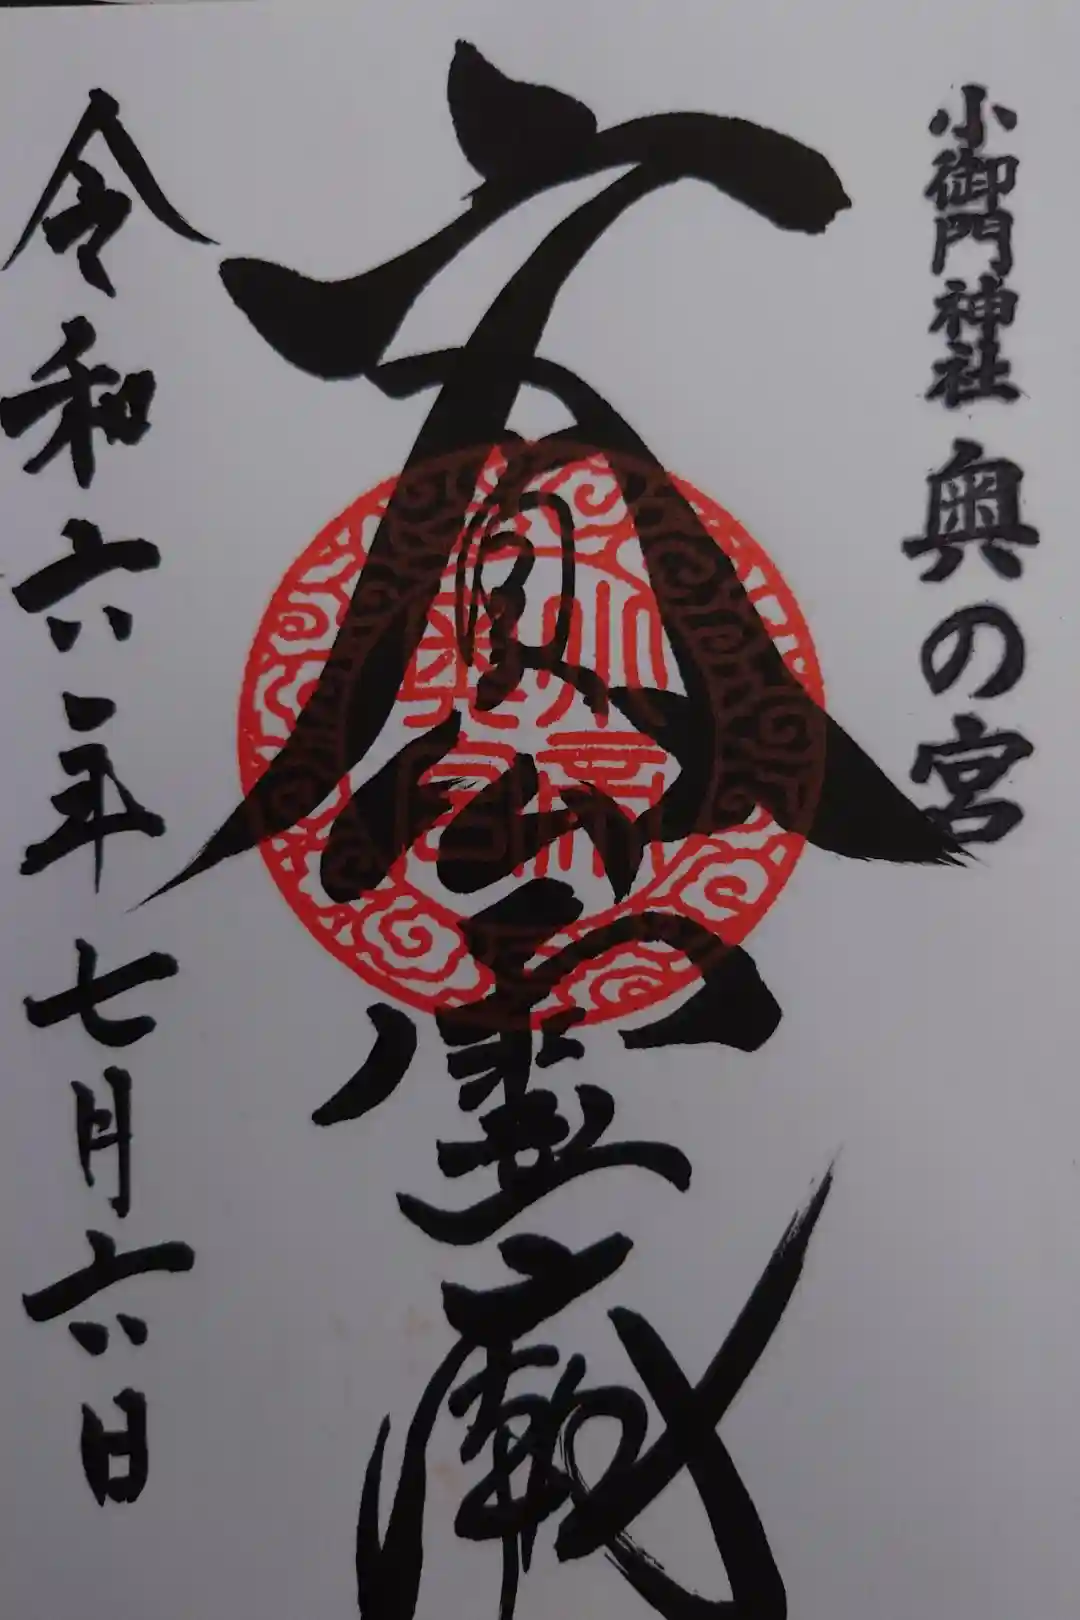 小御門神社 奥の宮
文貞公霊
令和六年七月六日